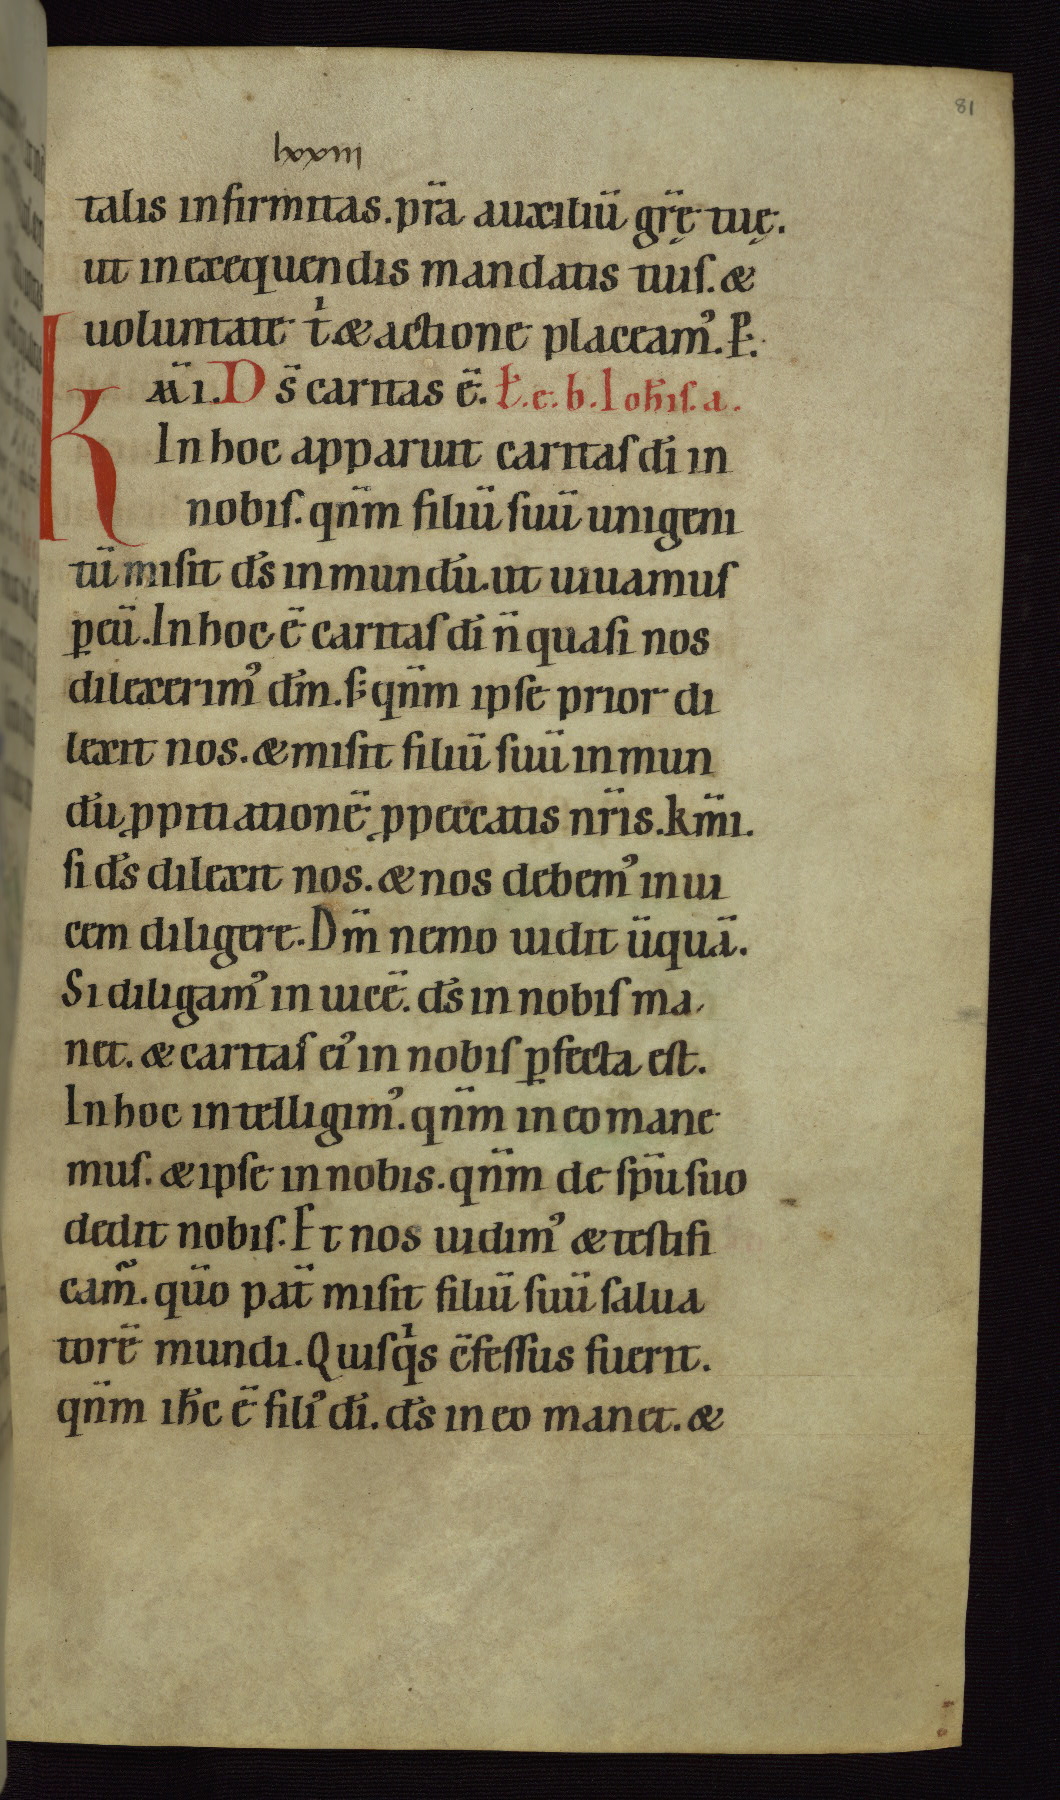 81
lxxiii
talis infirmitas. p̄ra auxiliū gr̄ę tuę.
ut in exequendis mandatis tuis. &
uoluntate t̍ & actione placeam᾿. P̄.
K
m̄i. D s̄ caritas ē. L̄. e. b. Ioh̄is. a.
In hoc apparuit caritas dī in
nobis. qn̄m filiū suū unigeni
tū misit d̄s in mundū. ut uiuamus
ꝑ eū. In hoc ē caritas dī n̄ quasi nos
dilexerim᾿ dm̄. s; qn̄m ipse prior di
lexit nos. & misit filiū suū in mun
dū ꝓpitiationē ꝓ peccatis nr̄is. km̄i.
si d̄s dilexit nos. & nos debem᾿ inui
cem diligere. Dm̄ nemo uidit ūquā.
Si diligam᾿ inuicē. d̄s in nobis ma
net. & caritas ei᾿ in nobis ꝑfecta est.
In hoc intelligim᾿. qn̄m in eo mane
mus. & ipse in nobis. qn̄m de sp̄u suo
dedit nobis. Et nos uidim᾿ & testifi
cam᾿. qūo pat̄ misit filiū suū salua
torē mundi. Quisq̍s c̄fessus fuerit.
qn̄m ih̄c ē fili᾿ dī. d̄s in eo manet. &